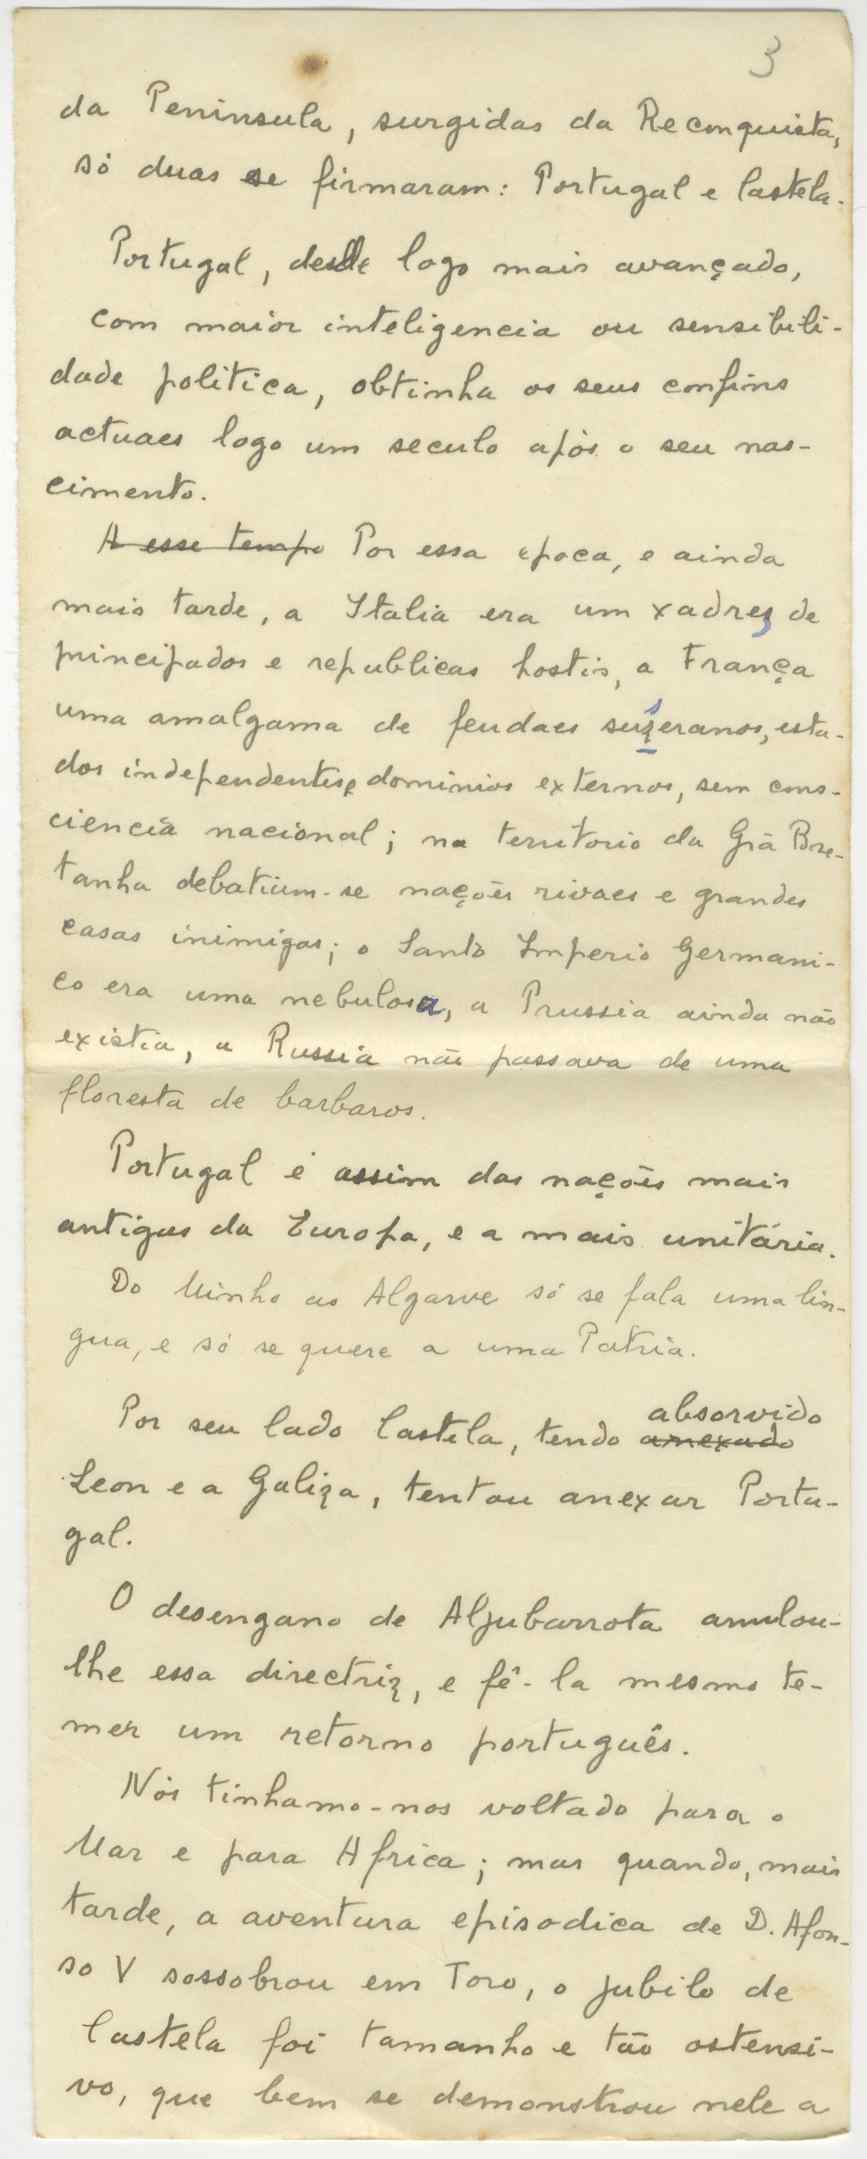 3
da Peninsula, surgidas da Reconquista,
só duas se firmaram: Portugal e Castela.
Portugal, desde logo mais avançado,
com maior inteligencia ou sensibili-
dade politica, obtinha os seus confins
actuaes logo um seculo após o seu nas-
cimento.
A esse tempo Por essa epoca, e ainda
mais tarde, a Italia era um xadrez de
principados e republicas hostis, a França
uma amalgama de feudaes suseranos, esta-
dos independentes e dominios externos, sem cons-
ciencia nacional; no territorio da Grã Bre-
tanha debatiam-se nações rivaes e grandes
casas inimigas; o Santo Imperio Germani-
co era uma nebulosa, a Prussia ainda não
existia, a Russia não passava de uma
floresta de barbaros.
Portugal é assim das nações mais
antigas da Europa, e a mais unitária.
Do Minho ao Algarve só se fala uma lin-
gua, e só se quere a uma Patria.
absorvido
Por seu lado Castela, tendo anexado
Leon e a Galiza, tentou anexar Portu-
gal.
O desengano de Aljubarrota anulou-
lhe essa directriz, e fê-la mesmo te-
mer um retorno português.
Nós tinhamo-nos voltado para o
Mar e para Africa; mas quando, mais
tarde, a aventura episodica de D. Afon-
so V sossobrou em Toro, o jubilo de
Castela foi tamanho e tão ostensi-
vo, que bem se demonstrou nele a